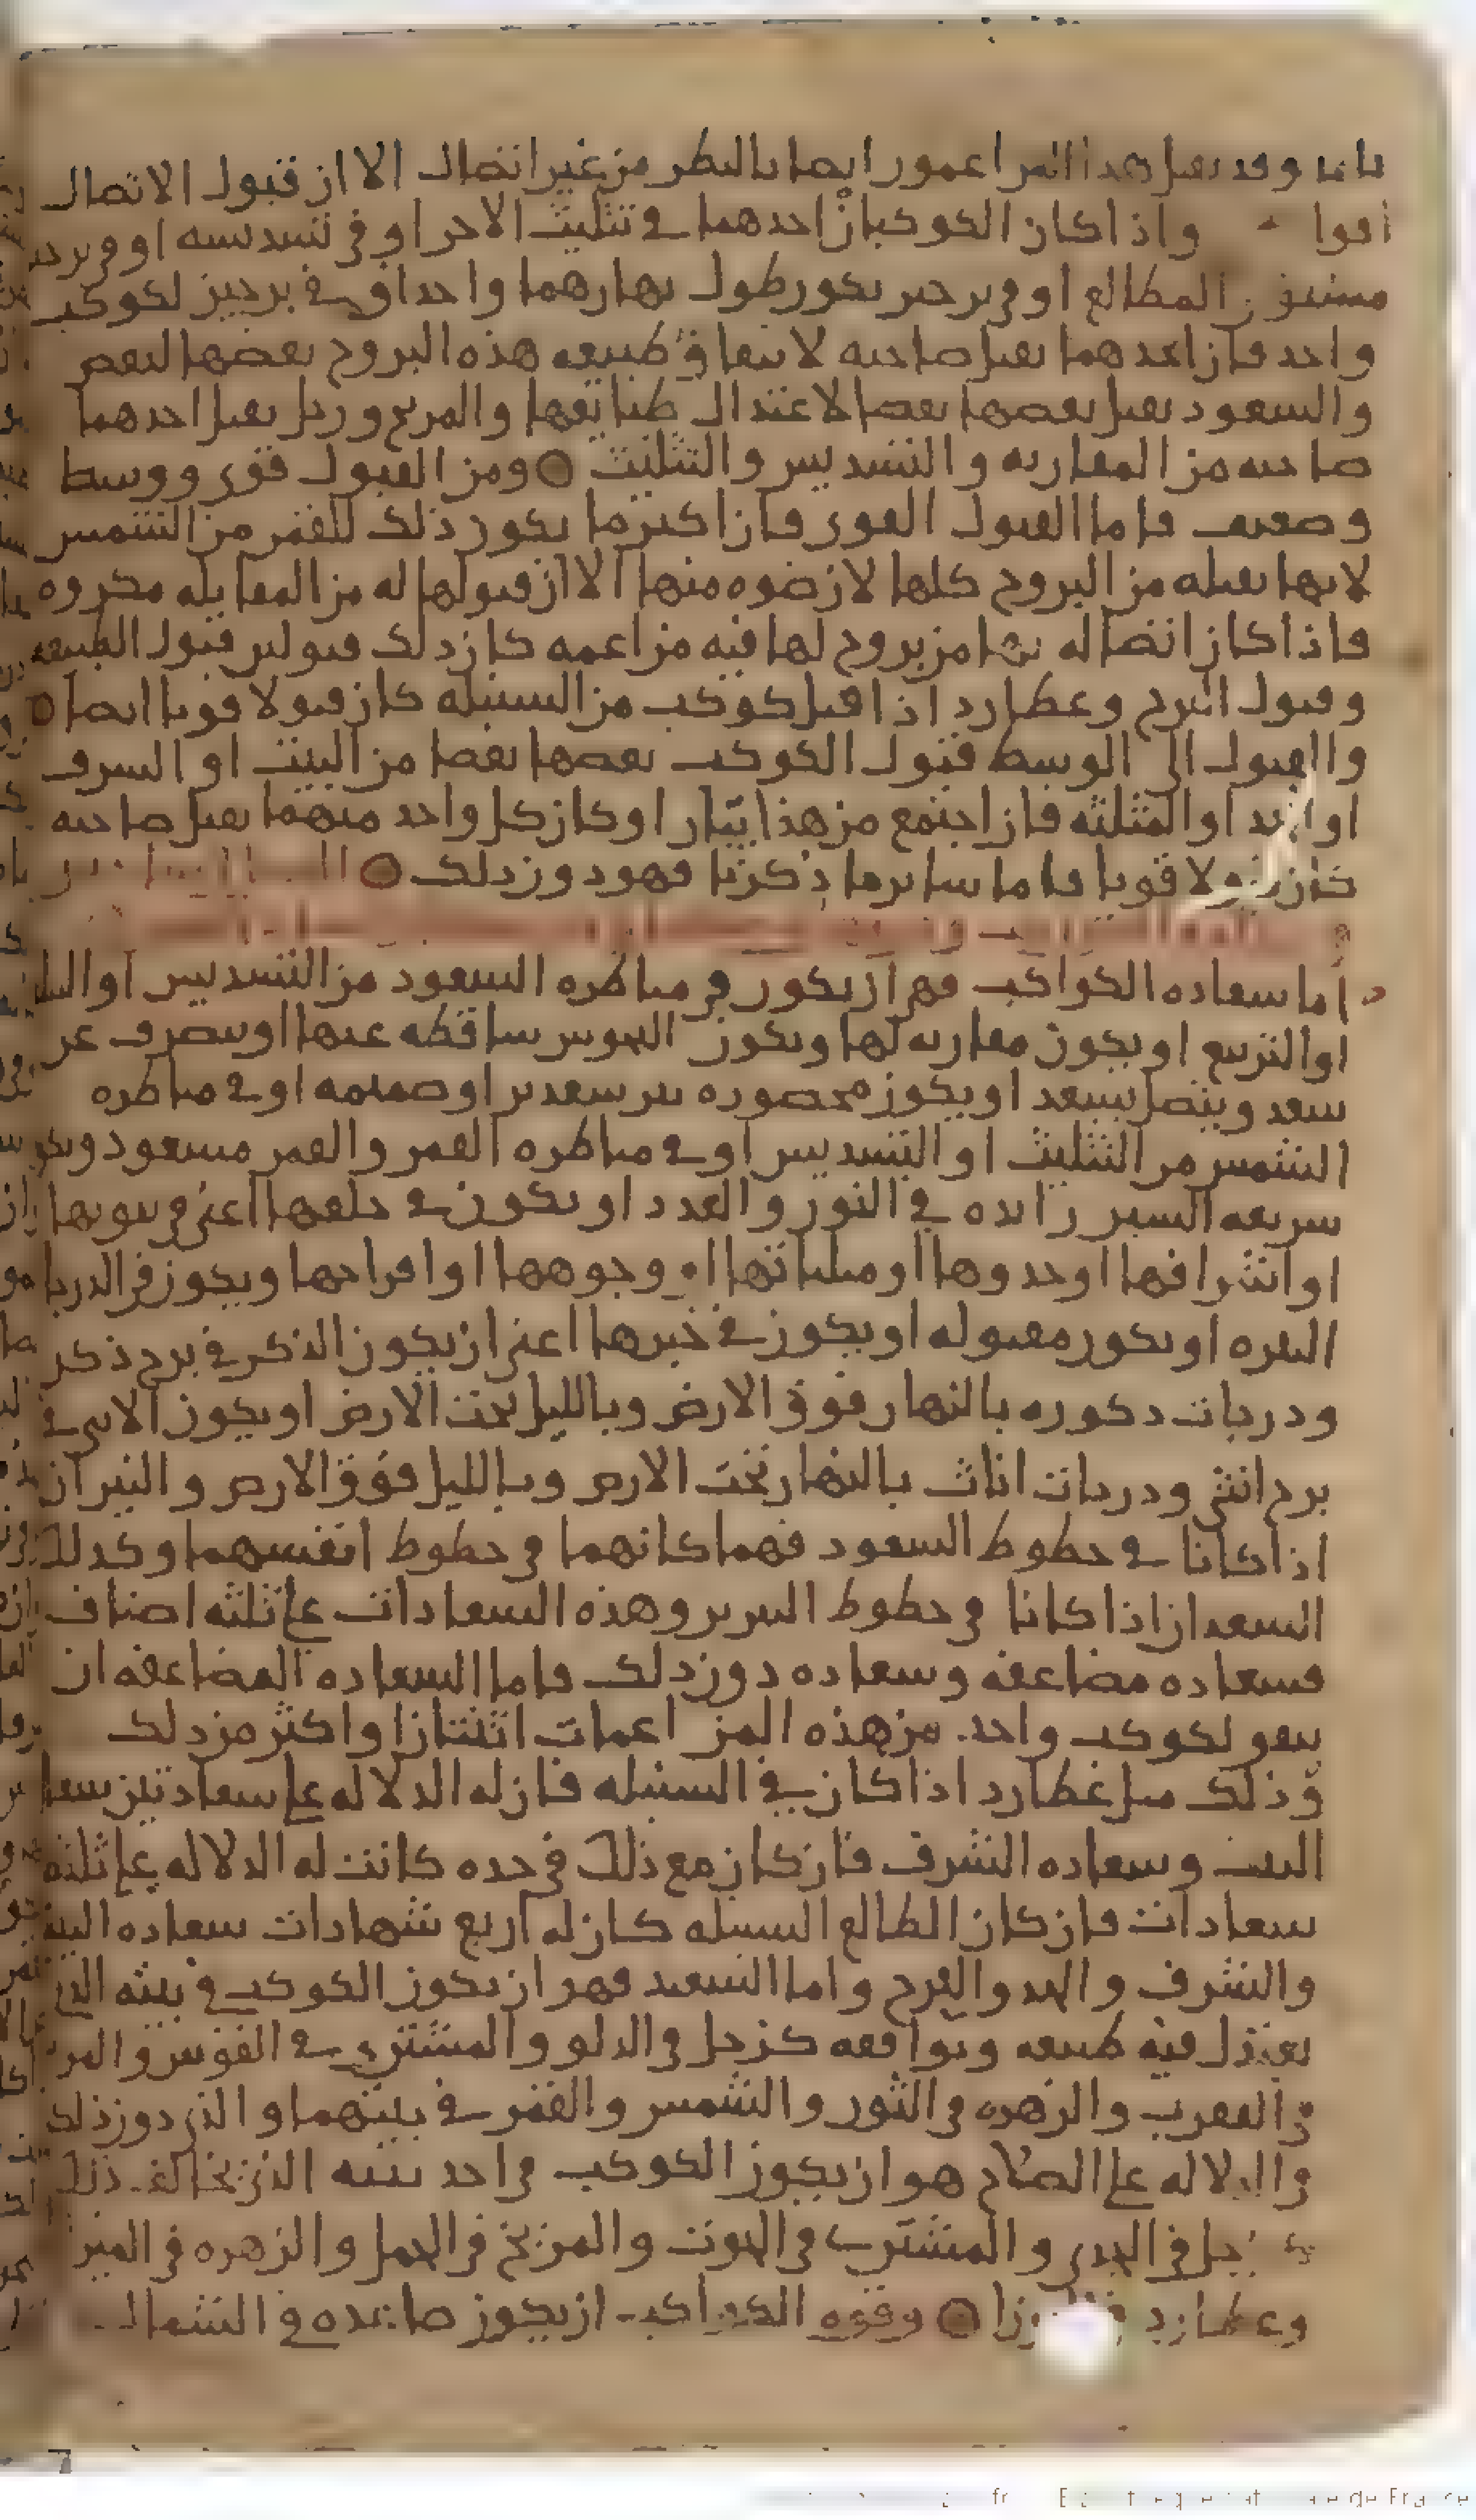 تاما وقد يقبل هذا المزاعمون ايضا بالنظر من غير اتصال الا ان قبول الاتصال
اقوا واذا كان الكوكبان احدهما في تثليث الاخر او في تسديسه او في برجين
المطالع او في برجين يكون طول نهارهما واحد او في برجين لكوكب
واحد فان احدهما يقبل صاحبه لاتفاق طبيعه هذه البروج بعضها لبعض
والسعود يقبل بعضها بعضا لاعتدال طبائعها والمريخ وزحل يقبل احدهما
صاحبه من المقاربه والتسديس والتثليث ومن القبول قوي ووسط
وضعيف فاما القبول القوي فان اكثر ما يكون ذلك للقمر من الشمس
لانها تقبله من البروج كلها لان ضوه منها الا ان قبولها له من المقابله مكروه
فاذا كان اتصاله بها من بروج لها فيه مزاعمه كان ذلك قبولين قبول الطبيعه
وقبول البرج وعطارد اذا قبل كوكب من السنبله كان قبولا قويا ايضا
والقبول الى الوسط قبول الكوكب بعضها بعضا من البيت او الشرف
او الحد او المثلثه فان اجتمع من هذا بيتان او كان كل واحد منهما يقبل صاحبه
كان قبولا قويا فاما سائر ما ذكرنا فهو دون ذلك
اما سعاده الكواكب فهي ان يكون في مناظره السعود من التسديس او التثليث
او التربيع او يكون مقاربه لها ويكون النحوس ساقطه عنها او ينصرف عن
سعد ويتصل بسعد او يكون محصوره بين سعدين او صميمه او في مناظره
الشمس من التثليث او التسديس او في مناظره القمر والقمر مسعود ويكون
سريعه السير زايده في النور والعدد او يكون في حلبها اعني في بيوتها
او اشرافها او حدودها او مثلثاتها او وجوهها او افراحها ويكون في الدرجات
النيره او يكون مقبوله او يكون في حيزها اعني ان يكون الذكر في برج ذكر
ودرجات ذكوره بالنهار فوق الارض وبالليل تحت الارض او يكون الانثى في
برج انثى ودرجات اناث بالنهار تحت الارض وبالليل فوق الارض والنيران
اذا كانا في حظوظ السعود فهما كانهما في حظوظ انفسهما وكذلك
السعدان اذا كانا في حظوظ النيرين وهذه السعادات على ثلثه اصناف
فسعاده مضاعفه وسعاده دون ذلك فاما السعاده المضاعفه ان
يتفق لكوكب واحد من هذه المزاعمات اثنتان او اكثر من ذلك
وذلك مثل عطارد اذا كان في السنبله فان له الدلاله على سعادتين سعاده
البيت وسعاده الشرف فان كان مع ذلك في حده كانت له الدلاله على ثلثه
سعادات فان كان الطالع السنبله كان له اربع شهادات سعاده البيت
والشرف والحد والفرح واما السعيد فهو ان يكون الكوكب في بيته الذي
يعتدل فيه طبيعه ويوافقه كزحل في الدلو والمشتري في القوس والمريخ
في العقرب والزهره في الثور والشمس والقمر في بيتهما والذي دون ذلك
في الدلاله على الصلاح هو ان يكون الكوكب في احد بيتيه الذي يخالف ذلك
كزحل في الجدي والمشتري في الحوت والمريخ في الحمل والزهره في الميزان
وعطارد في الجوزا وقوه الكواكب ان يكون صاعده في الشمال